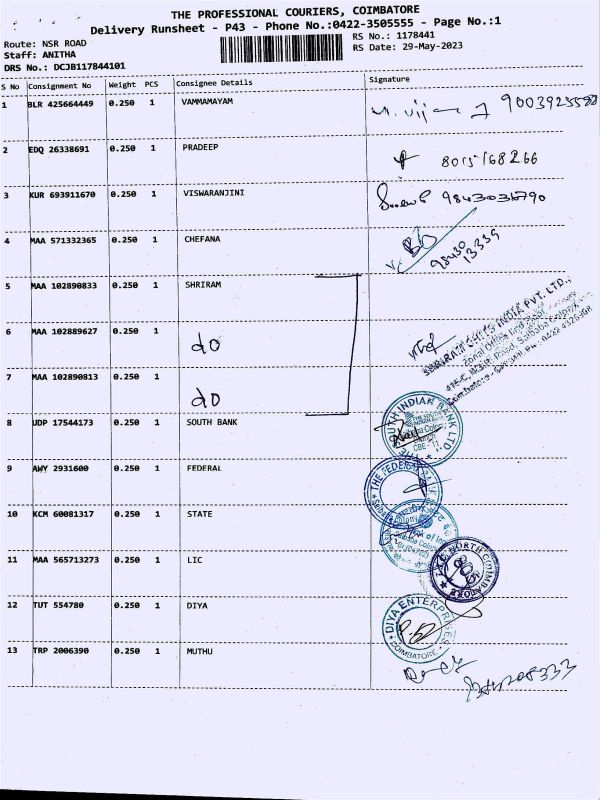 THE PROFESSIONAL COURIERS, COIMBATORE
Delivery Runsheet - P43 - Phone No.:0422-3505555 - Page No.:1
Route: NSR ROAD
Staff: ANITHA
DRS No.: DCJB117844101
RS No.: 1178441
RS Date: 29-May-2023
S No Consignment No Weight PCS Consignee Details Signature
1 BLR 425664449 0.250 1 VAMMAMAYAM
2 EDQ 26338691 0.250 1 PRADEEP 8015168266
3 KUR 693911670 0.250 1 VISWARANJINI 9843036790
4 MAA 571332365 0.250 1 CHEFANA 98430 13339
5 MAA 102890833 0.250 1 SHRIRAM
6 MAA 102889627 0.250 1 do
7 MAA 102890813 0.250 1 do
8 UDP 17544173 0.250 1 SOUTH BANK THE SOUTH INDIAN BANK LTD.
9 AWY 2931600 0.250 1 FEDERAL THE FEDERAL BANK
10 KCM 60081317 0.250 1 STATE
11 MAA 565713273 0.250 1 LIC NORTH COIMBATORE
12 TUT 554780 0.250 1 DIYA DIYA ENTERPRISES COIMBATORE
13 TRP 2006390 0.250 1 MUTHU